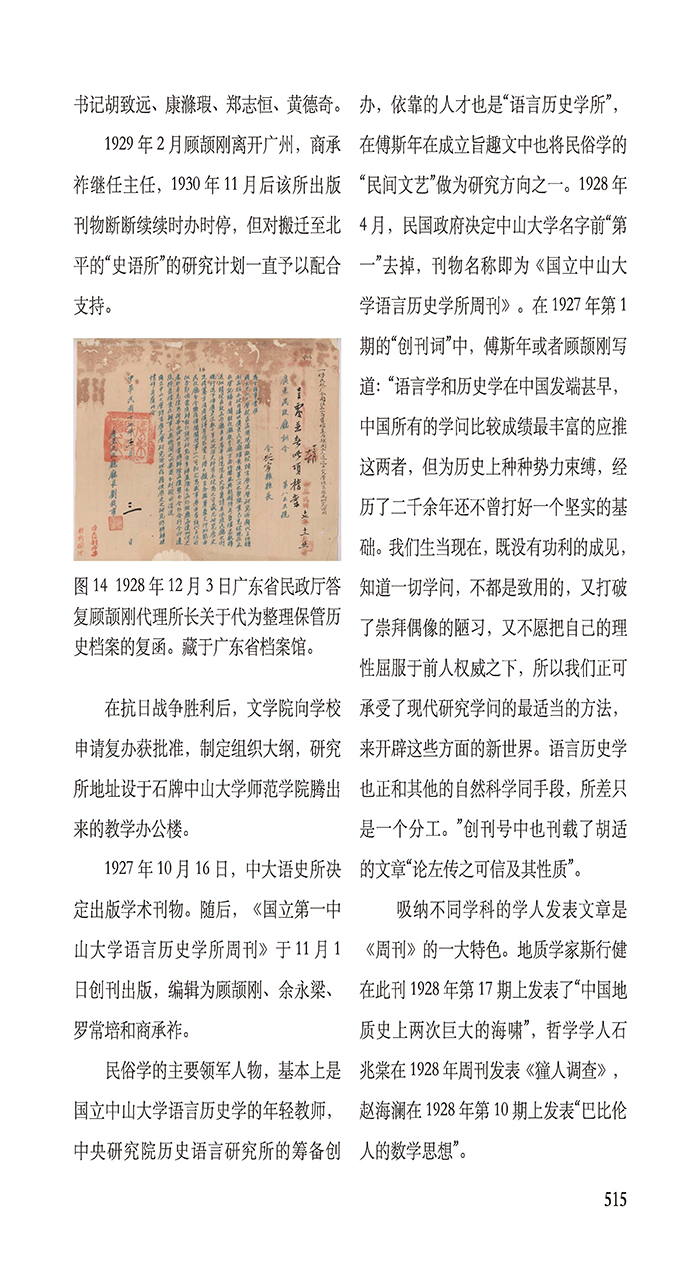 书记胡致远、康滌瑕、郑志恒、黄德奇。
1929 年 2 月顾颉刚离开广州，商承
祚继任主任，1930 年 11 月后该所出版
刊物断断续续时办时停，但对搬迁至北
平的“史语所”的研究计划一直予以配合
支持。
广东民政厅训令
图 14 1928 年 12 月 3 日广东省民政厅答
复顾颉刚代理所长关于代为整理保管历
史档案的复函。藏于广东省档案馆。
在抗日战争胜利后，文学院向学校
申请复办获批准，制定组织大纲，研究
所地址设于石牌中山大学师范学院腾出
来的教学办公楼。
1927 年 10 月 16 日，中大语史所决
定出版学术刊物。随后，《国立第一中
山大学语言历史学所周刊》于 11 月 1
日创刊出版，编辑为顾颉刚、余永梁、
罗常培和商承祚。
民俗学的主要领军人物，基本上是
国立中山大学语言历史学的年轻教师，
中央研究院历史语言研究所的筹备创
办，依靠的人才也是“语言历史学所”，
在傅斯年在成立旨趣文中也将民俗学的
“民间文艺”做为研究方向之一。1928 年
4 月，民国政府决定中山大学名字前“第
一”去掉，刊物名称即为《国立中山大
学语言历史学所周刊》。在 1927 年第 1
期的“创刊词”中，傅斯年或者顾颉刚写
道：“语言学和历史学在中国发端甚早，
中国所有的学问比较成绩最丰富的应推
这两者，但为历史上种种势力束缚，经
历了二千余年还不曾打好一个坚实的基
础。我们生当现在，既没有功利的成见，
知道一切学问，不都是致用的，又打破
了崇拜偶像的陋习，又不愿把自己的理
性屈服于前人权威之下，所以我们正可
承受了现代研究学问的最适当的方法，
来开辟这些方面的新世界。语言历史学
也正和其他的自然科学同手段，所差只
是一个分工。”创刊号中也刊载了胡适
的文章“论左传之可信及其性质”。
吸纳不同学科的学人发表文章是
《周刊》的一大特色。地质学家斯行健
在此刊 1928 年第 17 期上发表了“中国地
质史上两次巨大的海啸”，哲学学人石
兆棠在 1928 年周刊发表《獞人调查》，
赵海澜在 1928 年第 10 期上发表“巴比伦
人的数学思想”。
515